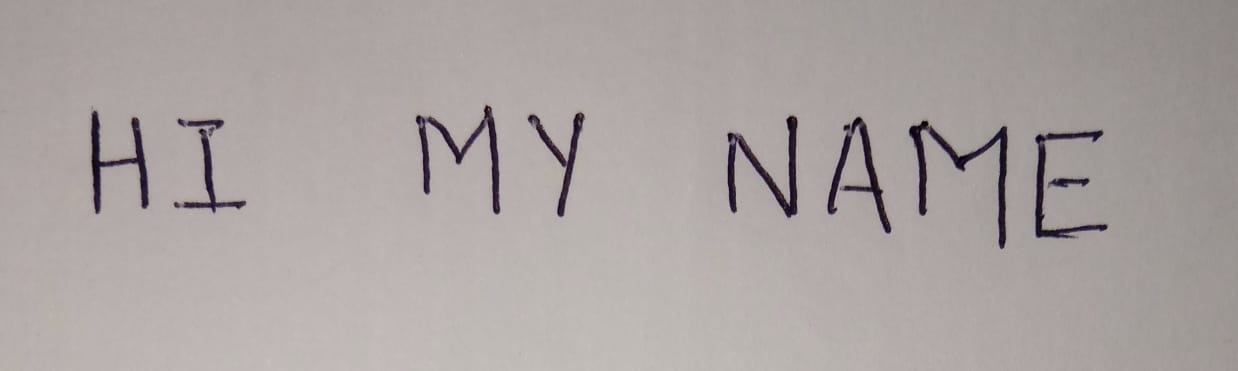 HI MY NAME